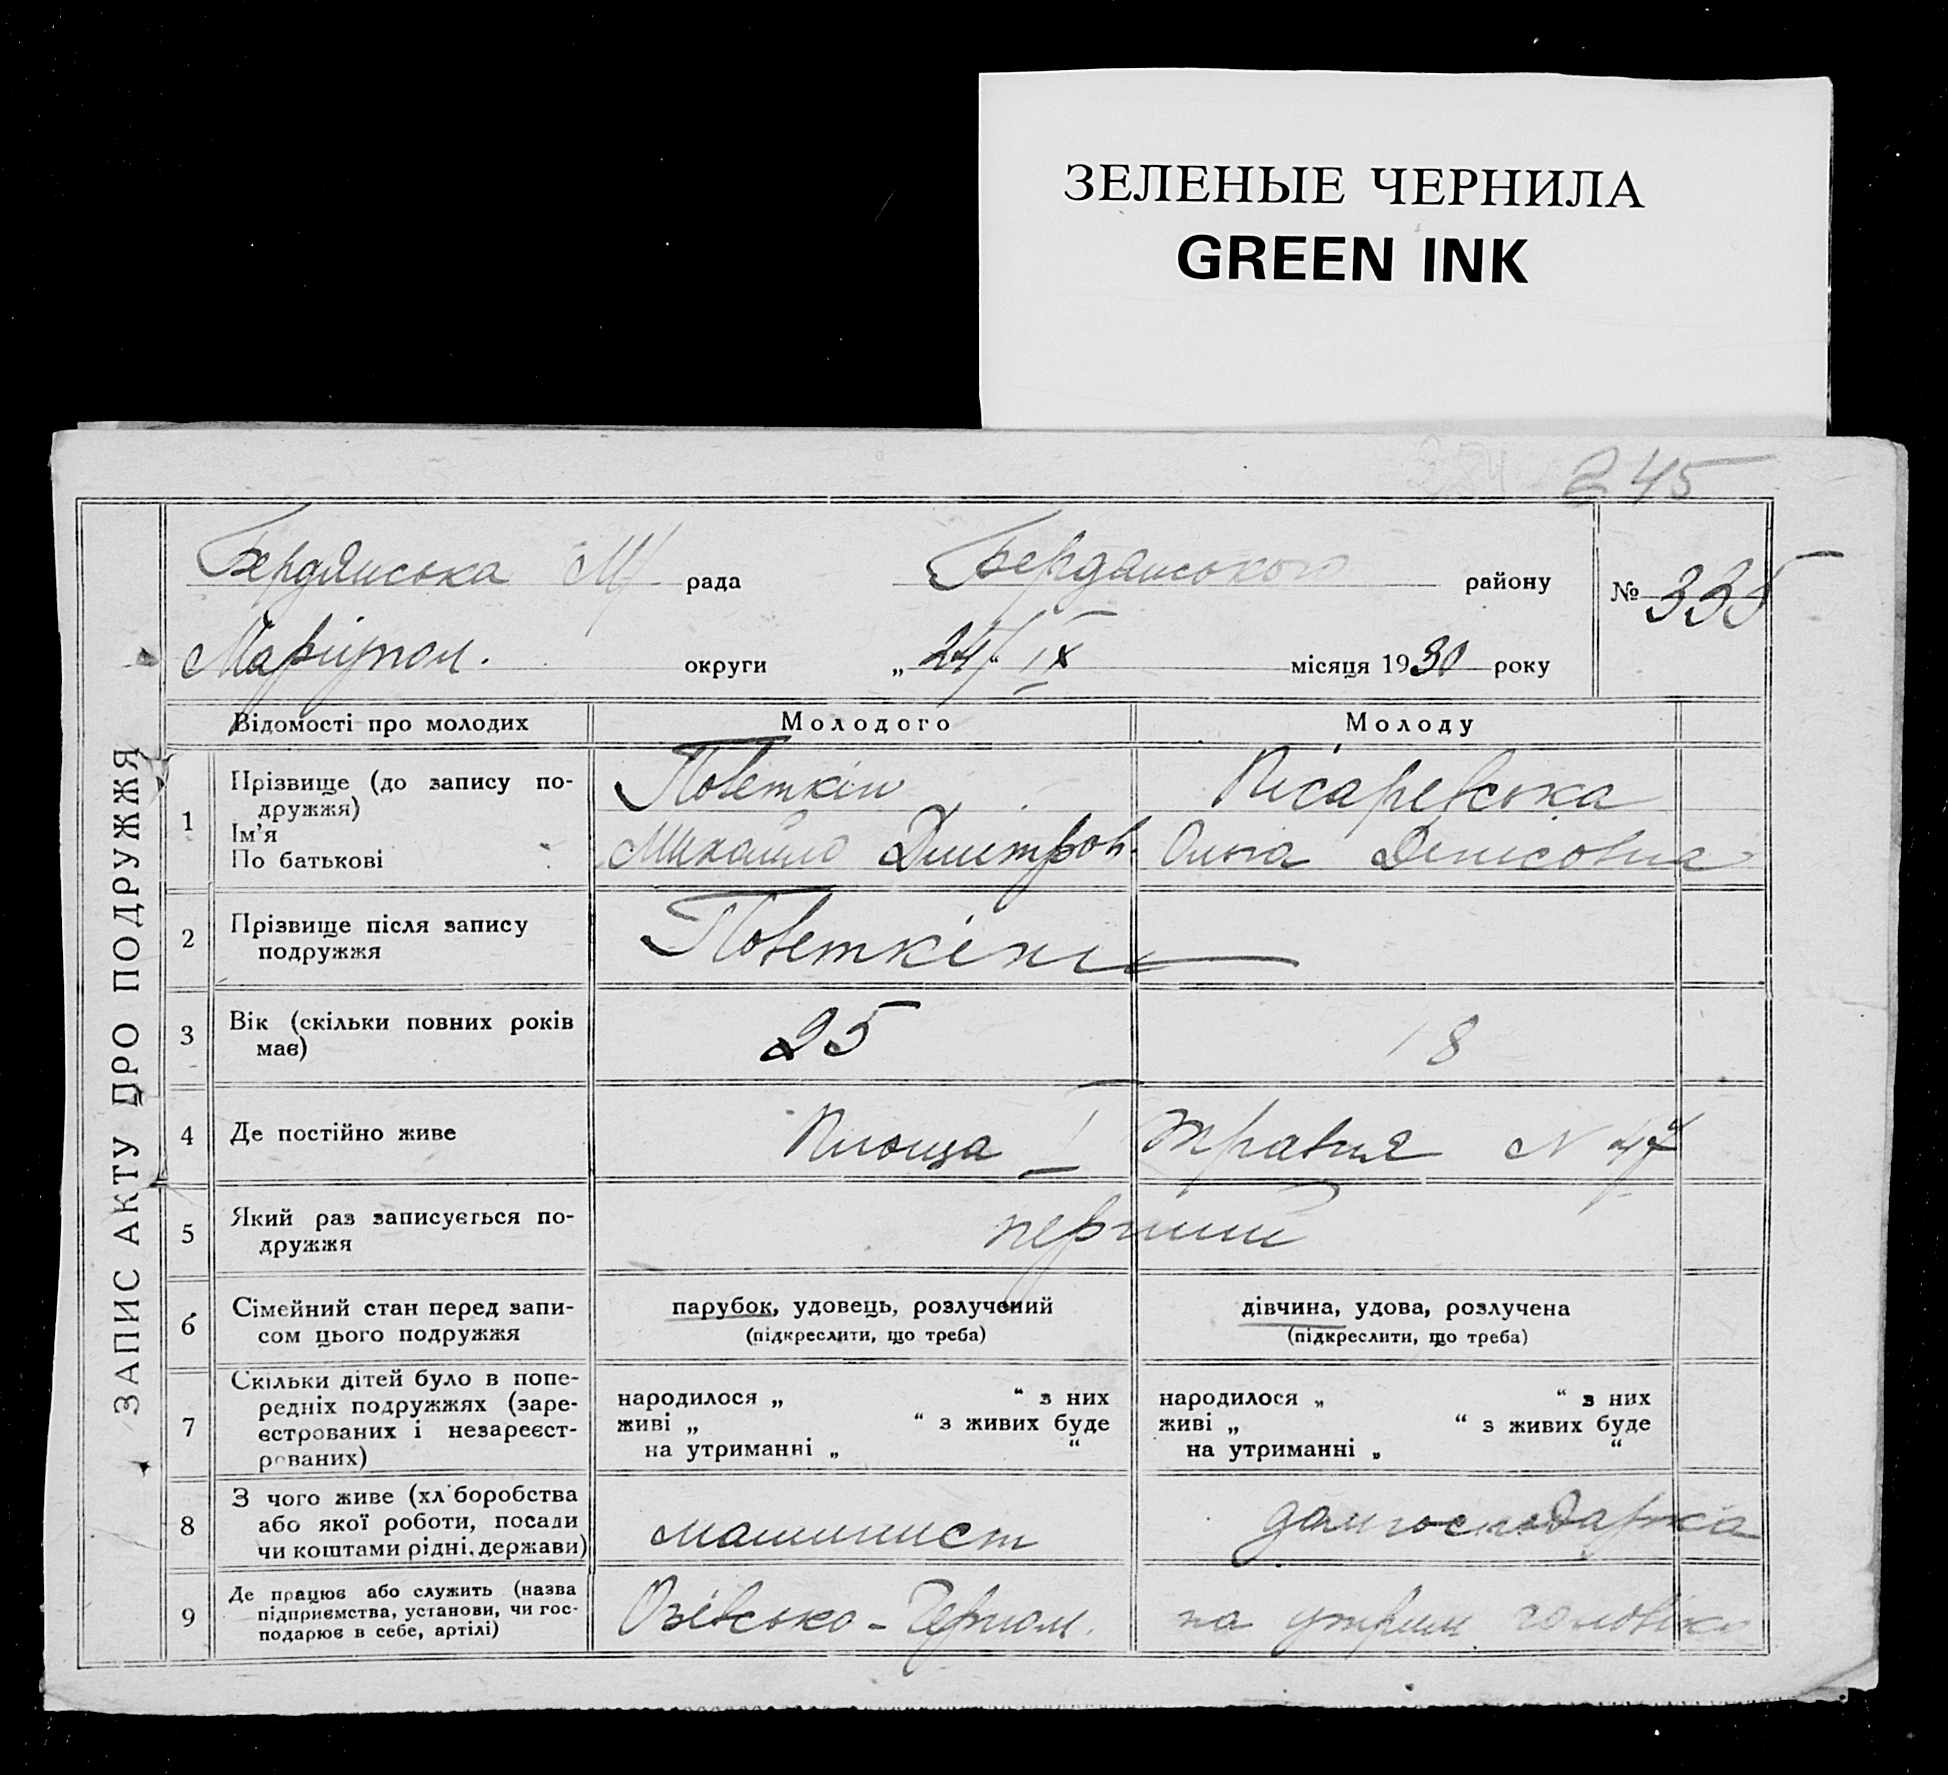 ЗЕЛЕНЫЕ ЧЕРНИЛА
GREEN INK
245
Бердянська М/ рада Бердянського району № 335
Маріупол. округи „ 24/ “ IX місяця 1930 року
ЗАПИС АКТУ ПРО ПОДРУЖЖЯ
Відомості про молодих Молодого Молоду
1 Прізвище (до запису по-
дружжя)
Ім'я
По батькові
Поветкін
Михайло Дмитров.
Пісаревська
Ольга Денісовна
2 Прізвище після запису
подружжя
Поветкіни
3 Вік (скільки повних років
має)
25 18
4 Де постійно живе Площа I травня N 47
5 Який раз записується по-
дружжя
перший
6 Сімейний стан перед запи-
сом цього подружжя
парубок, удовець, розлучений
(підкреслити, що треба)
дівчина, удова, розлучена
(підкреслити, що треба)
7 Скільки дітей було в попе-
редніх подружжях (заре-
єстрованих і незареєст-
рованих)
народилося „ “ з них
живі „ “ з живих буде
на утриманні „ “
народилося „ “ з них
живі „ “ з живих буде
на утриманні „ “
8 З чого живе (хліборобства
або якої роботи, посади
чи коштами рідні, держави)
машинист домгосподарка
9 Де працює або служить (назва
підприємства, установи, чи гос-
подарює в себе, артілі)
Озівсько-Чорном. на утрим. чоловіка